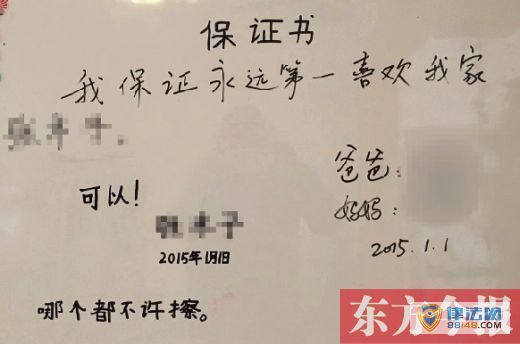 保证书
我保证永远第一喜欢我家
可以！
2015年1月1日
爸爸：
妈妈：
2015.1.1
哪个都不许擦。
东方今报
律法网
88148.com